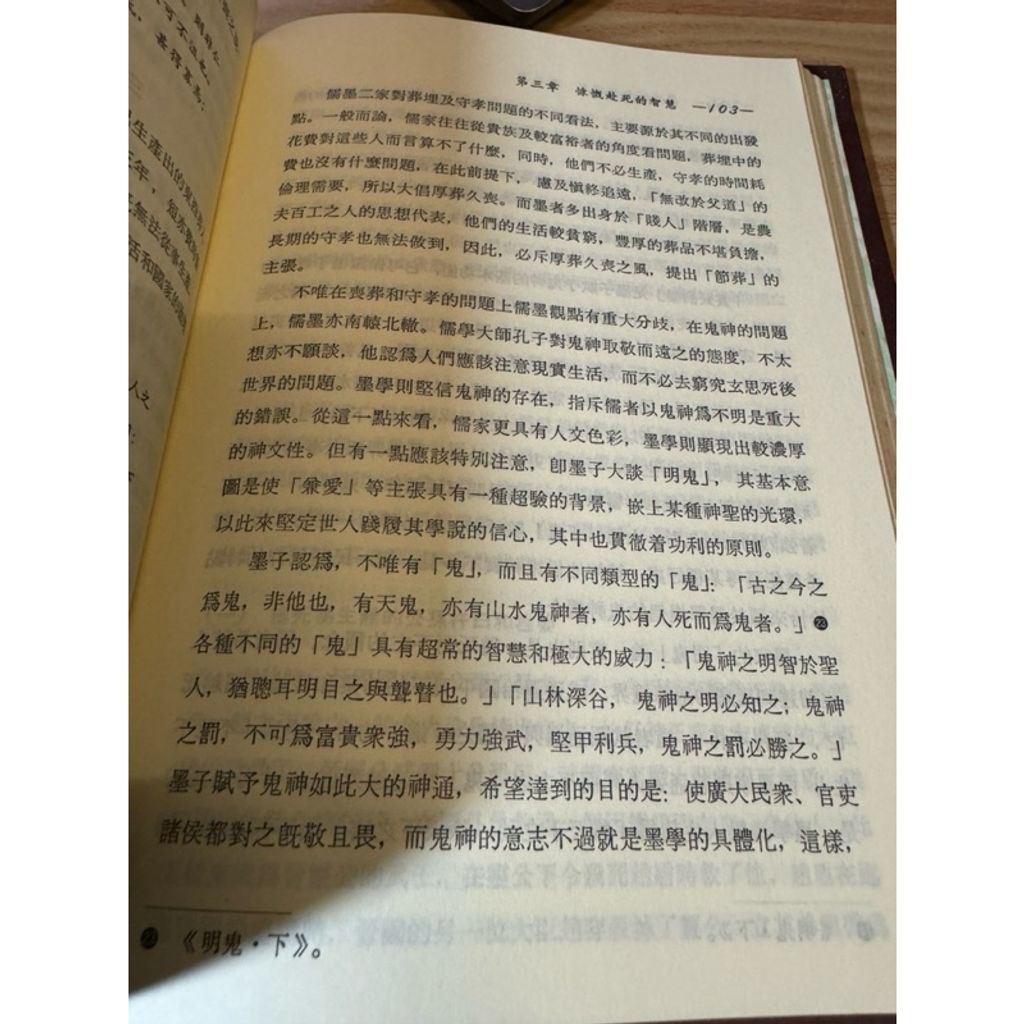 第三章　慷慨赴死的智慧　—103—
儒墨二家對葬埋及守孝問題的不同看法，主要源於其不同的出發
點。一般而論，儒家往往從貴族及較富裕者的角度看問題，葬埋中的
花費對這些人而言算不了什麼，同時，他們不必生產，守孝的時間耗
費也沒有什麼問題，在此前提下，慮及愼終追遠，「無改於父道」的
倫理需要，所以大倡厚葬久喪。而墨者多出身於「賤人」階層，是農
夫百工之人的思想代表，他們的生活較貧窮，豐厚的葬品不堪負擔，
長期的守孝也無法做到，因此，必斥厚葬久喪之風，提出「節葬」的
主張。
不唯在喪葬和守孝的問題上儒墨觀點有重大分歧，在鬼神的問題
上，儒墨亦南轅北轍。儒學大師孔子對鬼神取敬而遠之的態度，不太
想亦不願談，他認爲人們應該注意現實生活，而不必去窮究玄思死後
世界的問題。墨學則堅信鬼神的存在，指斥儒者以鬼神爲不明是重大
的錯誤。從這一點來看，儒家更具有人文色彩，墨學則顯現出較濃厚
的神文性。但有一點應該特別注意，卽墨子大談「明鬼」，其基本意
圖是使「兼愛」等主張具有一種超驗的背景，嵌上某種神聖的光環，
以此來堅定世人踐履其學說的信心，其中也貫徹着功利的原則。
墨子認爲，不唯有「鬼」，而且有不同類型的「鬼」：「古之今之
爲鬼，非他也，有天鬼，亦有山水鬼神者，亦有人死而爲鬼者。」㉓
各種不同的「鬼」具有超常的智慧和極大的威力：「鬼神之明智於聖
人，猶聰耳明目之與聾瞽也。」「山林深谷，鬼神之明必知之；鬼神
之罰，不可爲富貴衆強，勇力強武，堅甲利兵，鬼神之罰必勝之。」
墨子賦予鬼神如此大的神通，希望達到的目的是：使廣大民衆、官吏
諸侯都對之旣敬且畏，而鬼神的意志不過就是墨學的具體化，這樣，
㉓　《明鬼·下》。